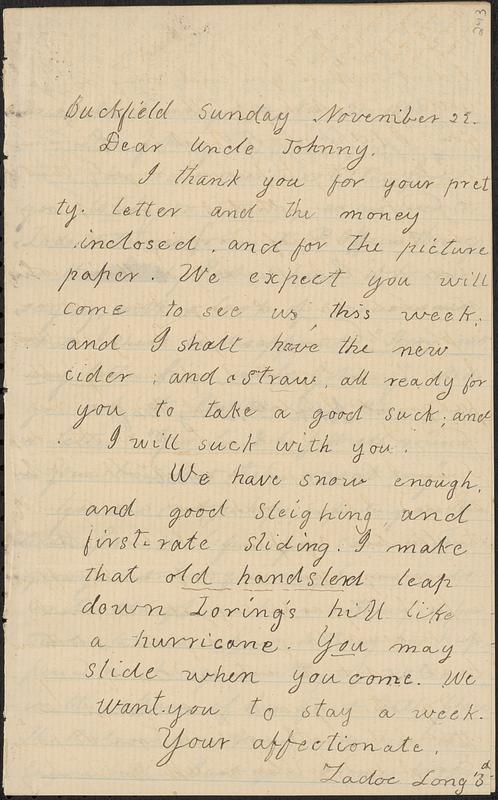 243
Buckfield Sunday November 22.
Dear Uncle Johnny,
I thank you for your pret
ty letter and the money
inclosed, and for the picture
paper. We expect you will
come to see us this week;
and I shall have the new
cider, and a straw, all ready for
you to take a good suck; and
I will suck with you.
We have snow enough,
and good sleighing and
first-rate sliding. I make
that old handsled leap
down Loring's hill like
a hurricane. You may
slide when you come. We
want you to stay a week.
Your affectionate,
Zadoc Long 3d